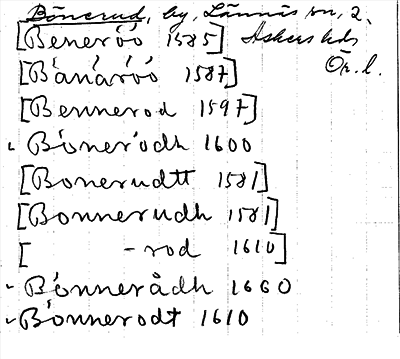 Bönerud, by, Lännäs sn, 2,
[Beneröö 1585] Askers hd
[Bånåröö 1587] Ör. l.
[Bennerod 1597]
Bönerödh 1600
[Bonerudtt 1581]
[Bonnerudh 1581]
[ -rod 1610]
Bönnerådh 1660
Bönnerodt 1610